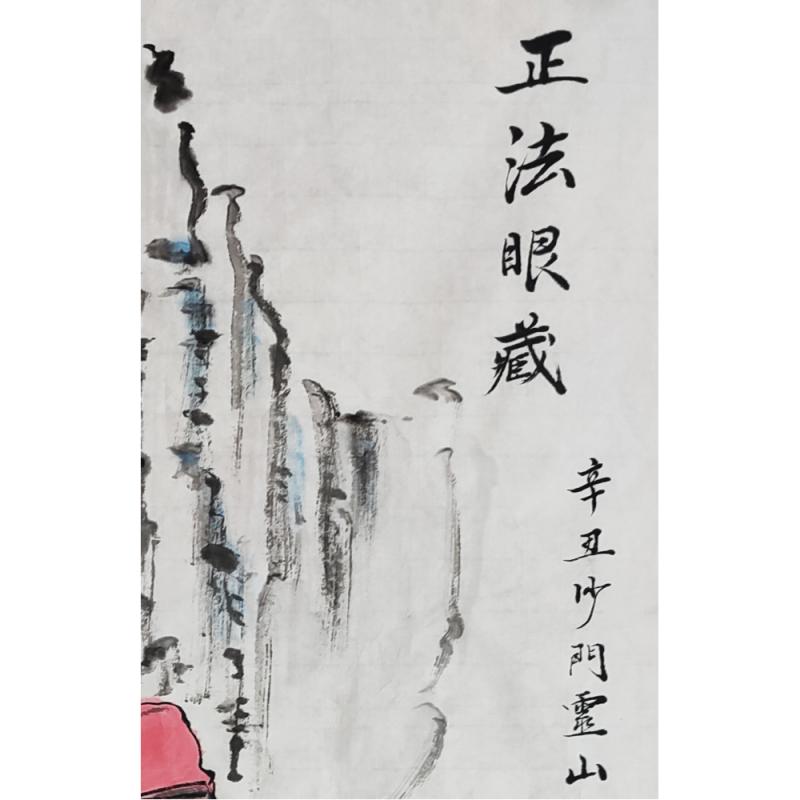 正法眼藏
辛丑沙門靈山